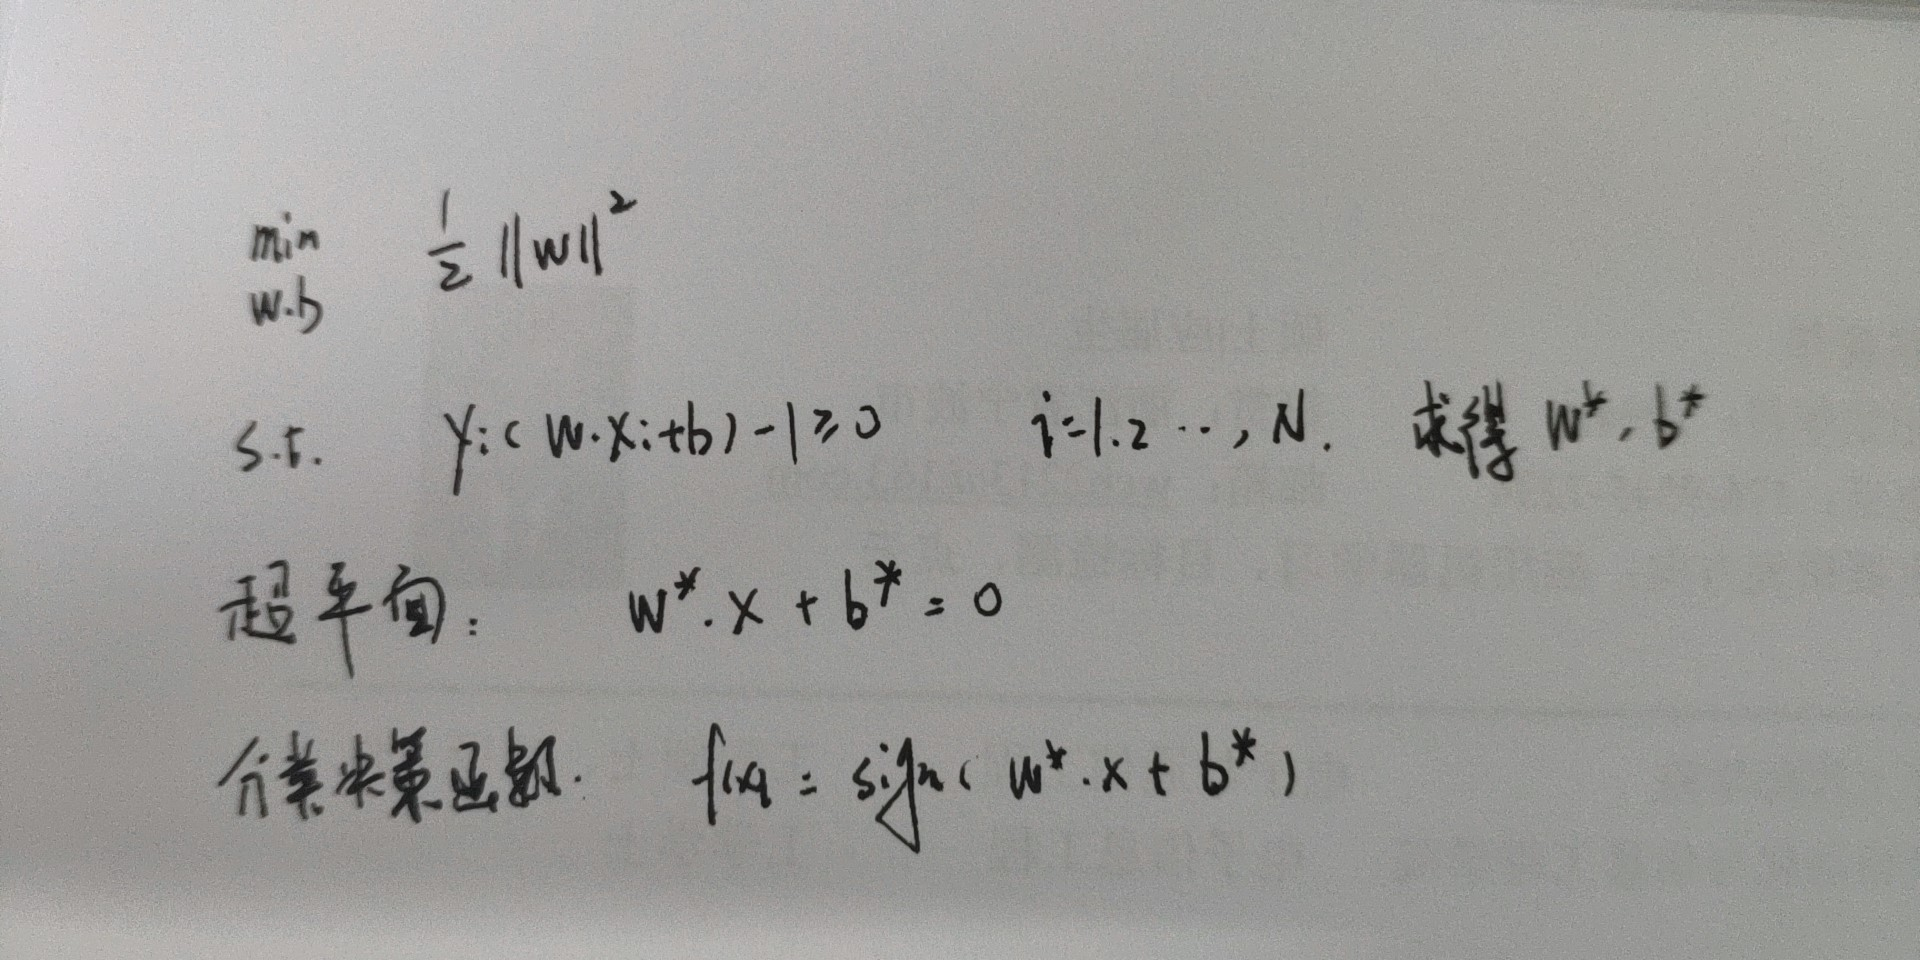 min 1/2 ||w||²
w.b
s.t. yi(w·xi+b)-1≥0 i=1.2 ··, N. 求得 w*, b*
超平面: w*·x + b* = 0
分类决策函数. f(x) = sign(w*·x + b*)